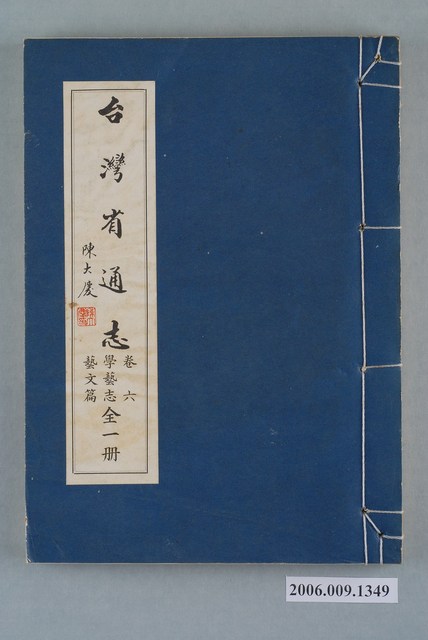 台灣省通志
陳大慶
卷六
學藝志全一册
藝文篇
2006.009.1349